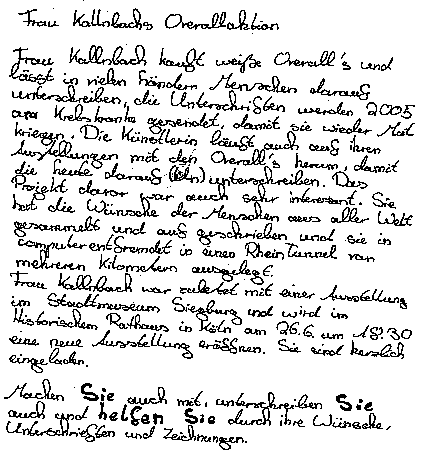 Frau Kallnbachs Overallaktion
Frau Kallnbach kauft weiße Overall's und
lässt in vielen Händern Menschen darauf
unterschreiben, die Unterschriften werden 2005
an Krebskranke gesendet, damit sie wieder Mut
kriegen. Die Künstlerin läuft auch auf ihren
Ausstellungen mit den Overall's herum, damit
die heute darauf unterschreiben. Das
Projekt davor war auch sehr interesant. Sie
hat die Wünsche der Menschen aus aller Welt
gesammelt und auf geschrieben und sie in
computerentfremdet in einen RheinTunnel von
mehreren Kilometern ausgelegt.
Frau Kallnbach war zuletzt mit einer Ausstellung
im Stadtmuseum Siegburg und wird im
Historischem Rathaus in Köln am 26.6. um 18:30
eine neue Ausstellung eröffnen. Sie sind herzlich
eingeladen.
Machen Sie auch mit, unterschreiben Sie
auch und helfen Sie durch ihre Wünsche,
Unterschriften und Zeichnungen.